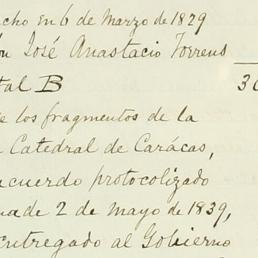 cho en 6 de Marzo de 1829
on José Anastacio Torrens
tal B 30
e los fragmentos de la
Catedral de Carácas,
cuerdo protocolizado
a de 2 de mayo de 1839,
entregado al Gobierno